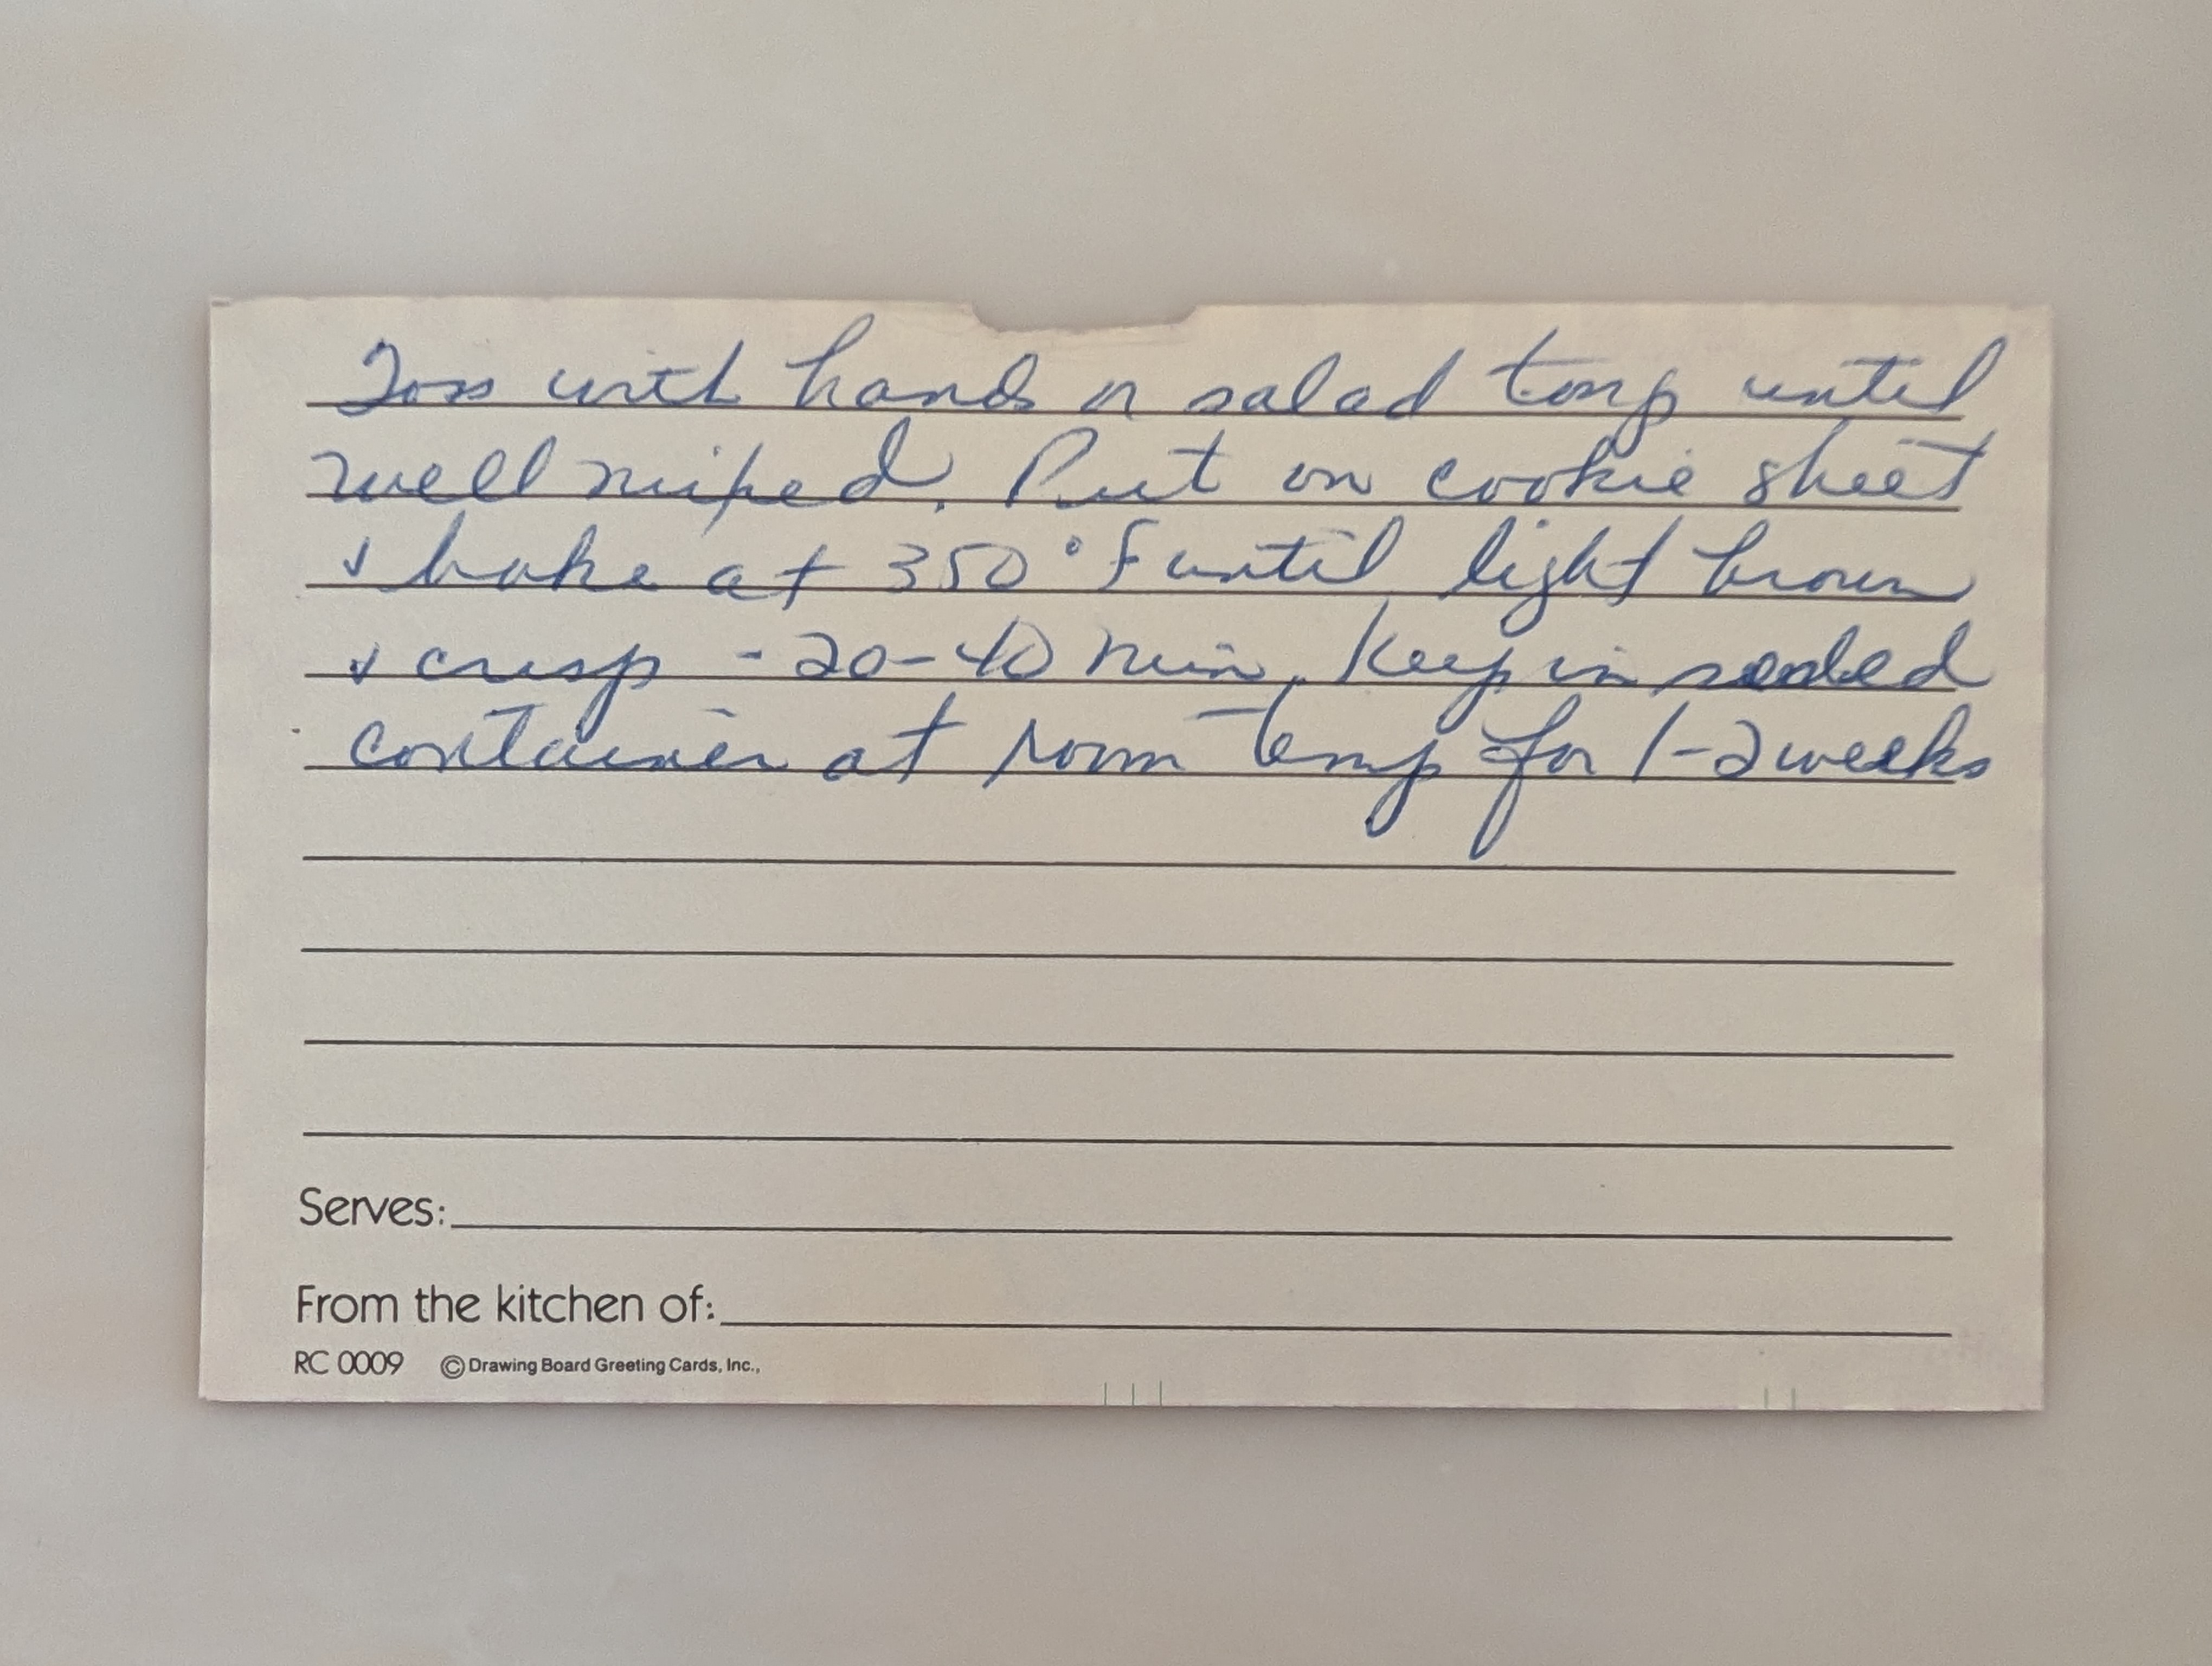 Toss with hands or salad tongs until
well mixed. Put on cookie sheet
& bake at 350°F until light brown
& crisp - 20-40 min. Keep in sealed
container at room temp for 1-2 weeks
Serves:
From the kitchen of:
RC 0009 © Drawing Board Greeting Cards, Inc.,